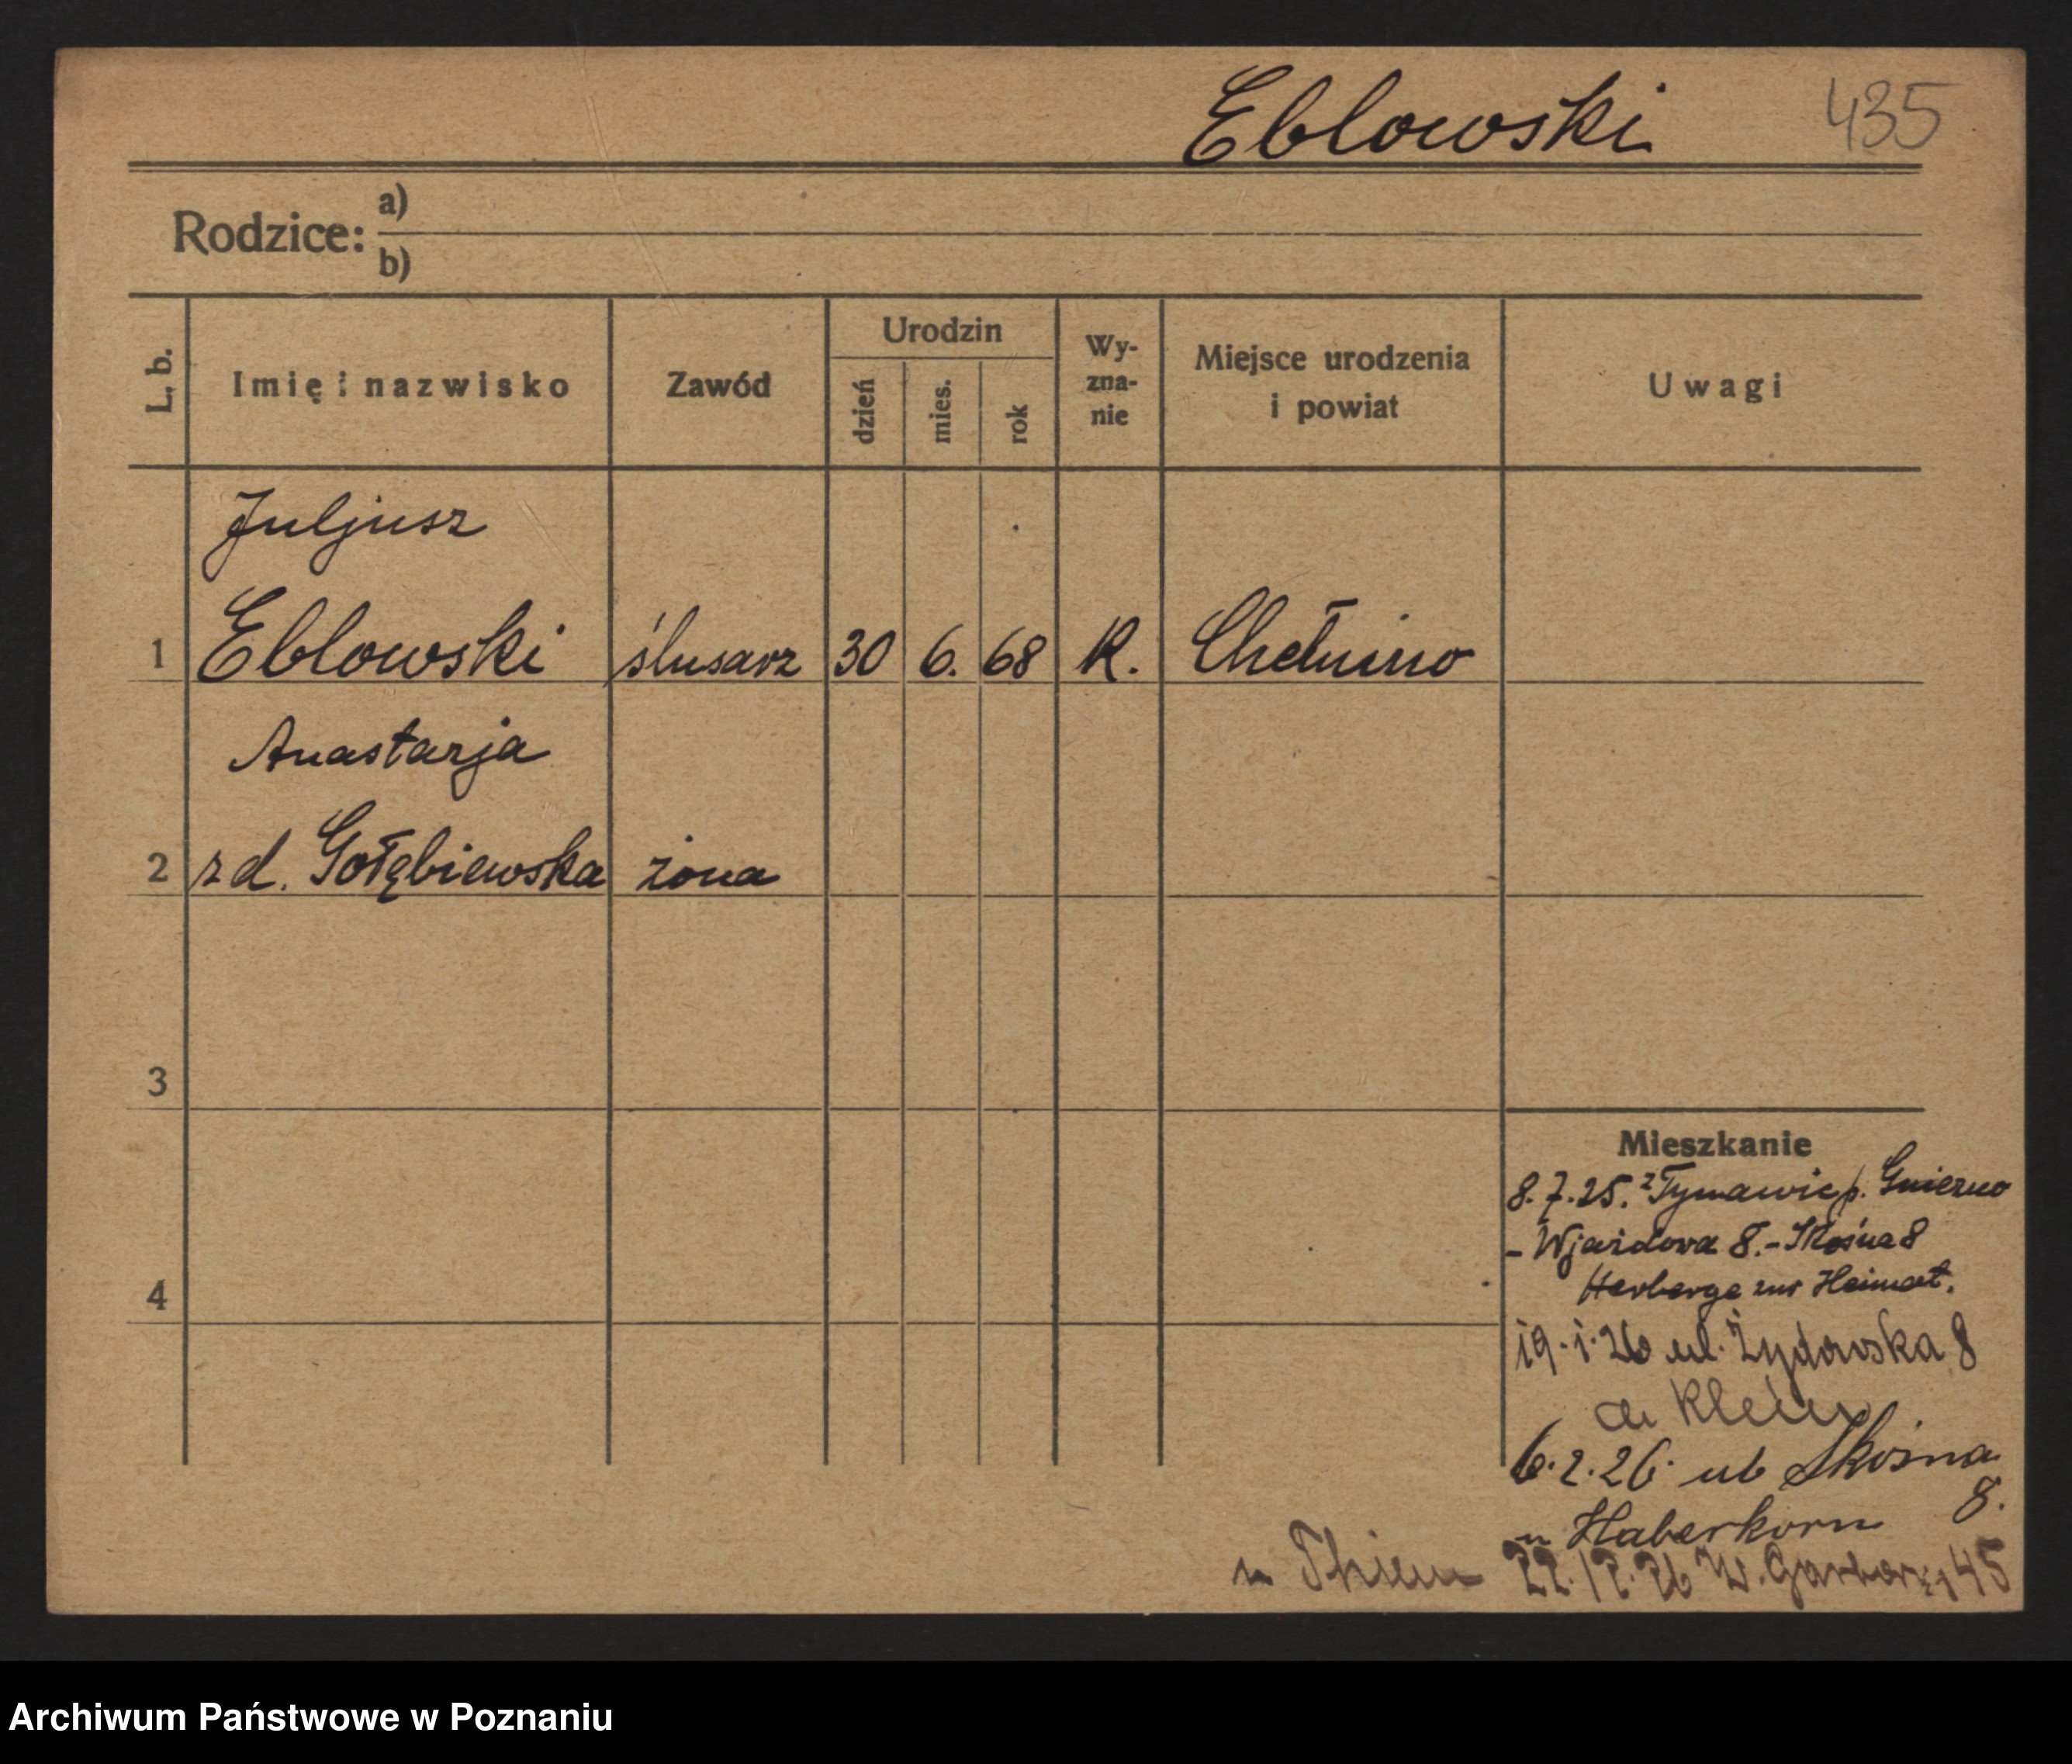 Eblowski 435
Rodzice: a)
b)
L. b.
Imię i nazwisko
Zawód
Urodzin
dzień
mies.
rok
Wy-
zna-
nie
Miejsce urodzenia
i powiat
Uwagi
Juljusz
1 Eblowski ślusarz 30 6. 68 K. Chełmno
Anastazja
2 zd. Gołębiewska żona
3
4
Mieszkanie
8.7.25. z Tymawic p. Gniezno
- Wjazdowa 8. - Skośna 8
Herberge zur Heimat.
19.1.26 ul. Żydowska 8
Klein
6.2.26. ul Skośna
8.
u Haberkorn
u Thiem 22.12.26 W. Garbary 45
Archiwum Państwowe w Poznaniu